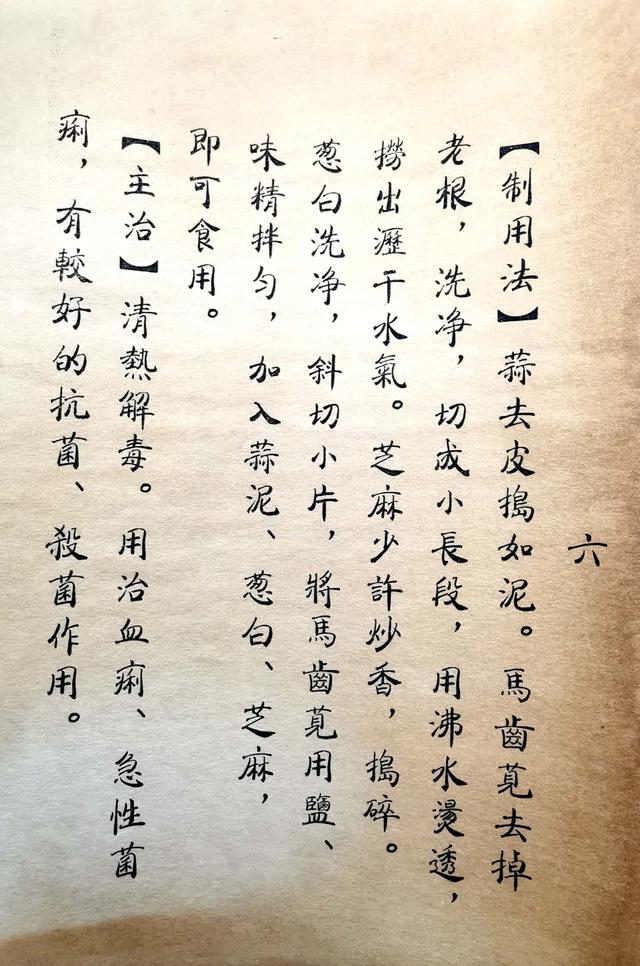 六
【制用法】蒜去皮搗如泥。馬齒莧去掉
老根，洗净，切成小長段，用沸水燙透，
撈出瀝干水氣。芝麻少許炒香，搗碎。
葱白洗净，斜切小片，將馬齒莧用鹽、
味精拌匀，加入蒜泥、葱白、芝麻，
即可食用。
【主治】清熱解毒。用治血痢、急性菌
痢，有較好的抗菌、殺菌作用。